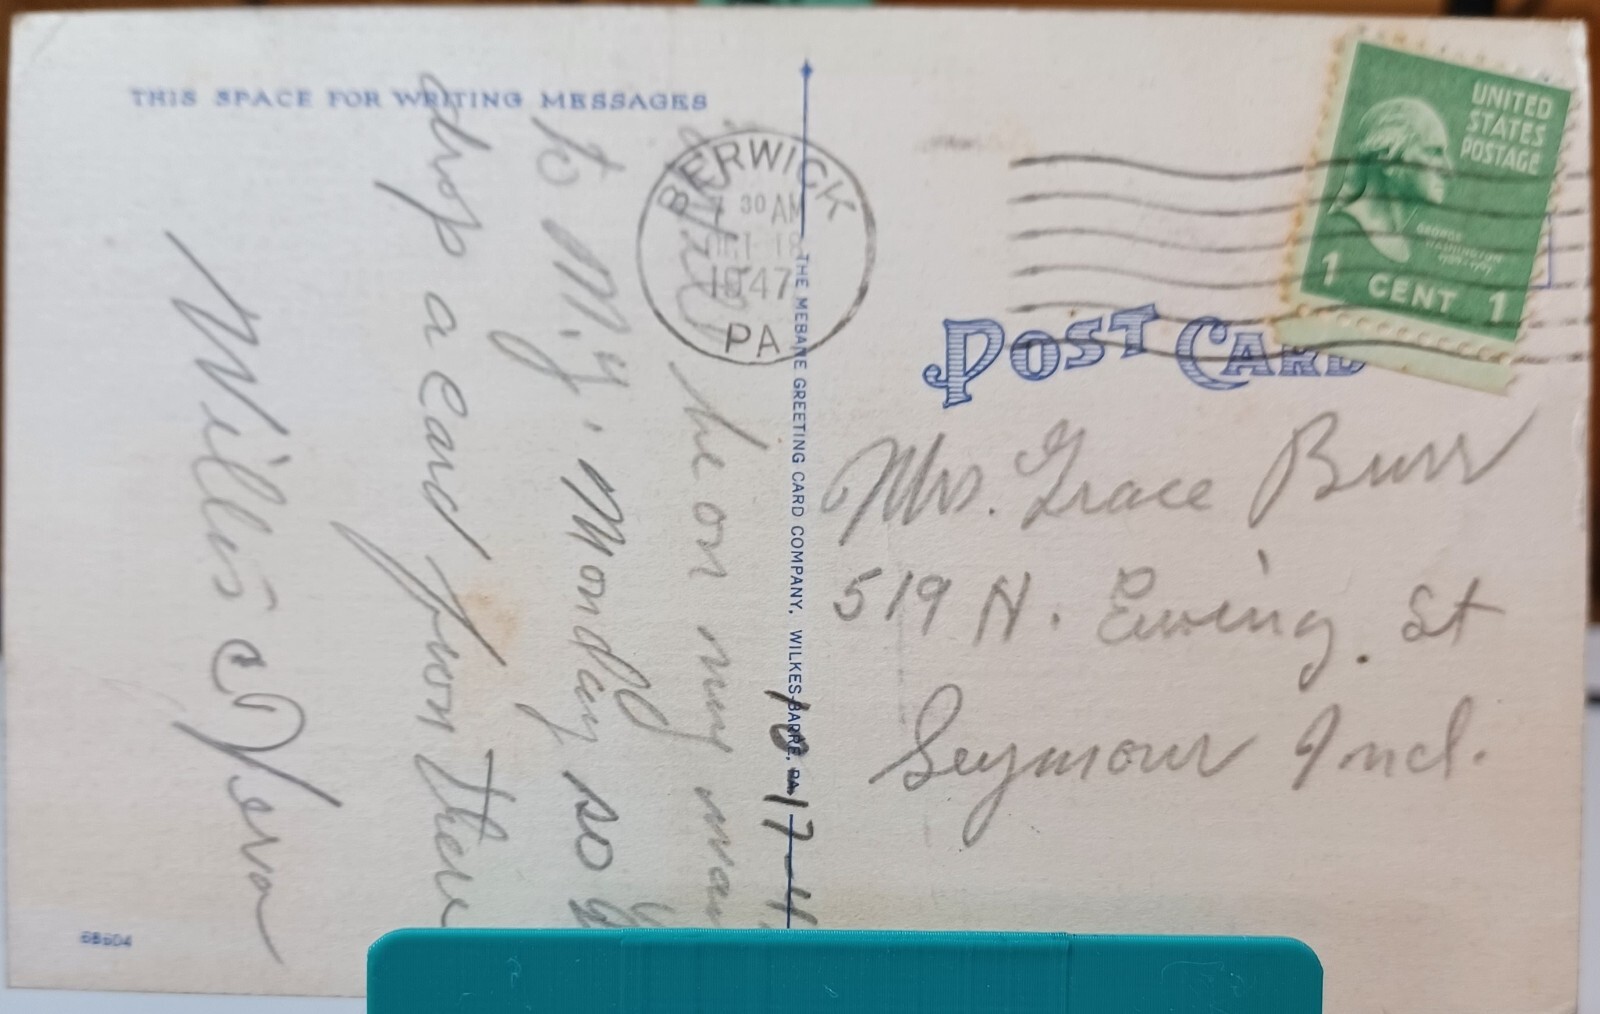 THIS SPACE FOR WRITING MESSAGES
BERWICK
30 AM
1947
PA
UNITED
STATES
POSTAGE
GEORGE
WASHINGTON
1 CENT 1
POST CARD
THE MEBANE GREETING CARD COMPANY, WILKES-BARRE, PA.
Mrs. Grace Burr
519 N. Ewing. St
Seymour Ind.
10-17-4
be on my
to M.Y. Monday so
drop a card from there
Willis & Verva
68604